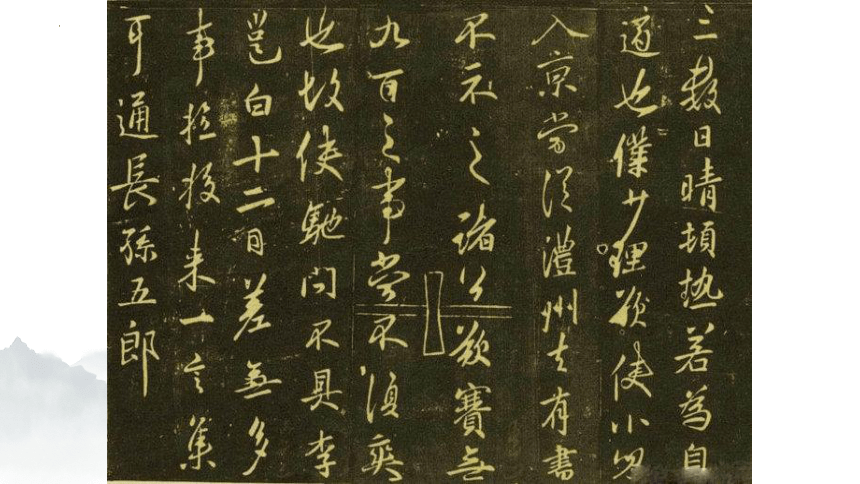 三數日晴頓熱若為自
適也僕少理欲使小兒
入京當從澧州去有書
不示之諸公欲賽無
九百之事當不須奭
也故使馳問不具李
邕白十二日差無多
事檢校來一言集
可通長孫五郎